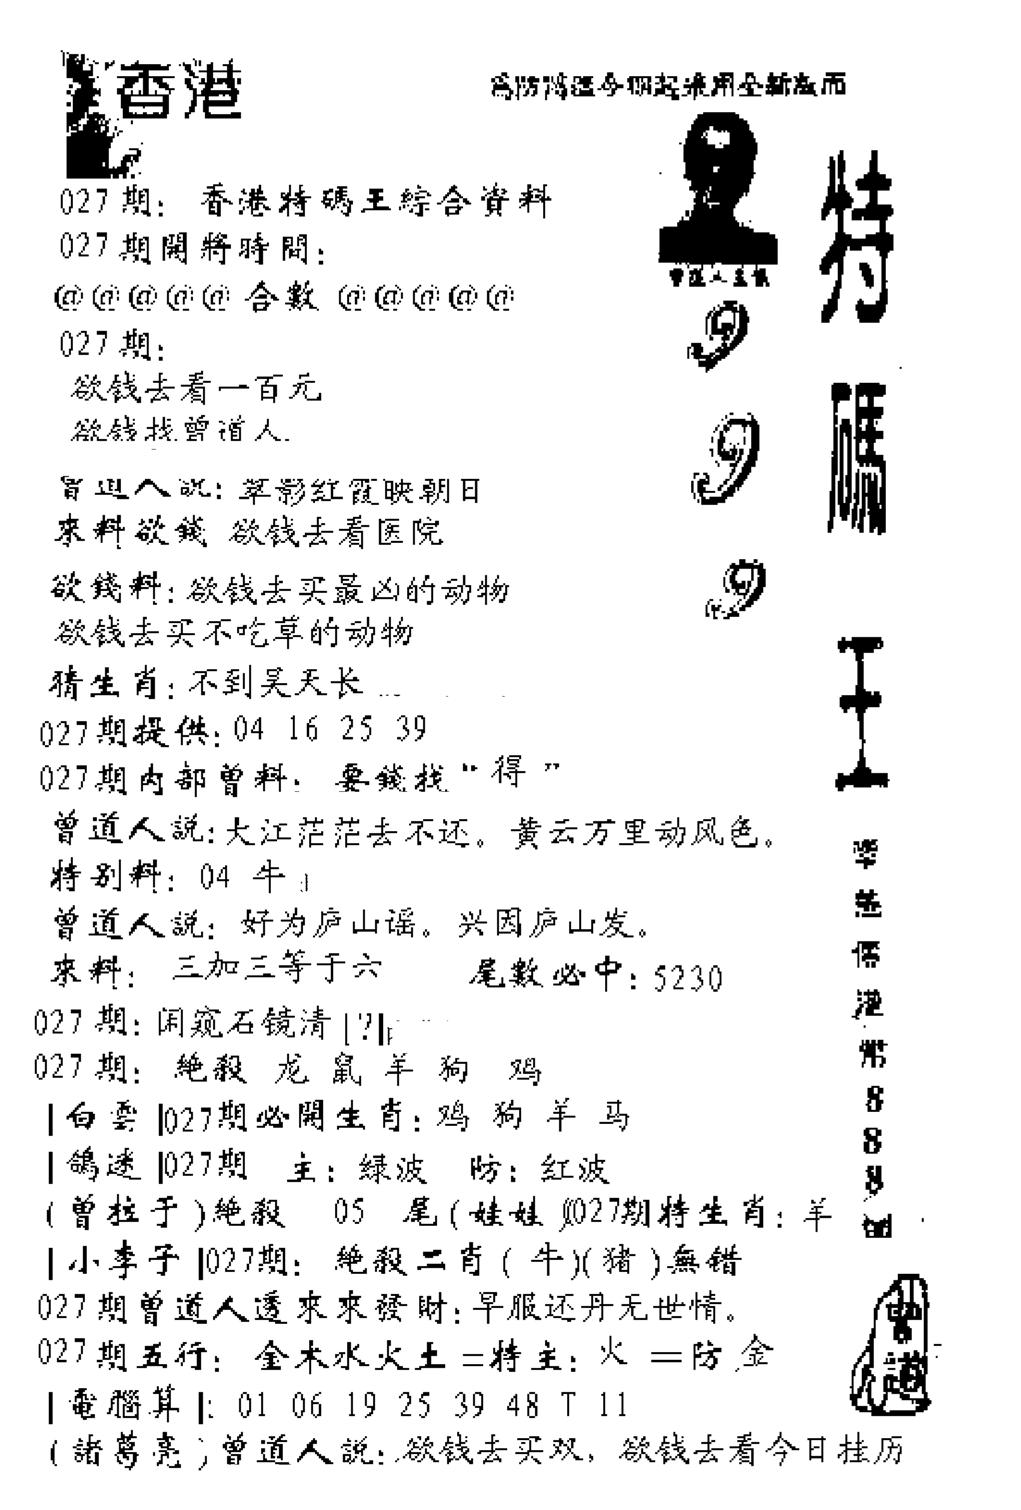 香港
為防濫今期起采用全新版面
027期：香港特碼王綜合資料
027期開將時間：
@@@@@合數@@@@@
027期：
欲钱去看一百元
欲钱找曾道人.
曾道人説：萃影红霞映朝日
來料欲錢 欲钱去看医院
欲錢料：欲钱去买最凶的动物
欲钱去买不吃草的动物
猜生肖：不到吴天长
027期提供：04 16 25 39
027期内部曾料：要錢找“得”
曾道人説：大江茫茫去不还。黄云万里动风色。
特别料：04 牛
曾道人説：好为庐山谣。兴因庐山发。
來料：三加三等于六 尾數必中：5230
027期：闲窥石镜清|?|
027期：絶殺 龙 鼠 羊 狗 鸡
|白雲|027期必開生肖：鸡 狗 羊 马
|鴿迷|027期 主：緑波 防：红波
(曾拉于)絶殺 05 尾(娃娃)(027期特生肖：羊
|小李子|027期：絶殺二肖(牛)(猪)無错
027期曾道人透來來發財：早服还丹无世情。
027期五行：金木水火土=特主：火 =防 金
|電腦算|：01 06 19 25 39 48 T 11
(諸葛亮)曾道人説：欲钱去买双，欲钱去看今日挂历
曾道人主
9
9
9
特碼王
港常888
曾道